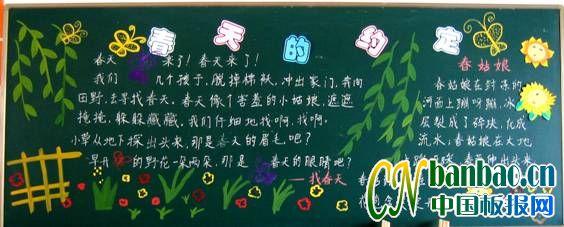 春天的约定
春天 来了！春天来了！
我们 几个孩子，脱掉棉袄，冲出家门，奔向
田野，去寻找春天。春天像个害羞的小姑娘，遮遮
掩掩，躲躲藏藏。我们仔细地找啊，找啊。
小草从地下探出头来，那是春天的眉毛吧？
早开 的野花一朵两朵，那是 春天的眼睛吧？
——找春天
春姑娘
春姑娘在封冻的
河面上蹦呀蹦，冰
层裂成了碎块，化成
流水；春姑娘在大地
CN banbao.cn
中国板报网